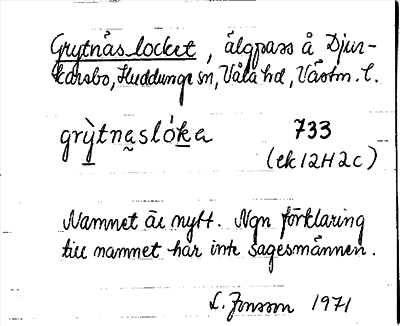 Grytnäslocket, älgpass å Djur-
karsbo, Huddunge sn, Våla hd, Västm. l.
grỳtnaslóka 733
(ek 12H2c)
Namnet är nytt. Ngn förklaring
till namnet har inte sagesmännen.
L. Jonsson 1971